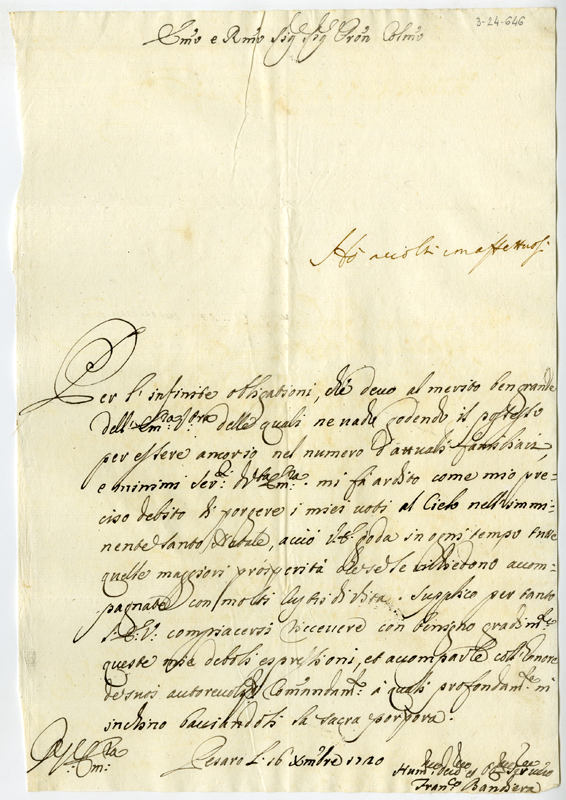 3-24-646
Emo e Rmo Sig. Sig. Pron Colmo
Hò accolti con affettuosi
Per l'infinite obligationi, che devo al merito ben grande
dell' Em: Vra delle quali ne vado godendo il possesso
per essere ancor io nel numero d'attuali familiari,
e minimi Ser: di Em: mi fà ardito come mio pre-
ciso debito di porgere i miei voti al Cielo nell'immi-
nente Santo Natale, acciò V.E. goda in ogni tempo tutte
quelle maggiori prosperità accom-
pagnate con molti lustri di vita. Supplico per tanto
V.E. compiacersi ricevere con benigno gradim.to
queste mie deboli espressioni, et accomparle coll'honore
de suoi autorevoli Comandam.ti à quali profondam.te m'
inchino baciandoli la sacra porpora.
Pesaro li 16 Xmbre 1720
Fran.co Bandiera